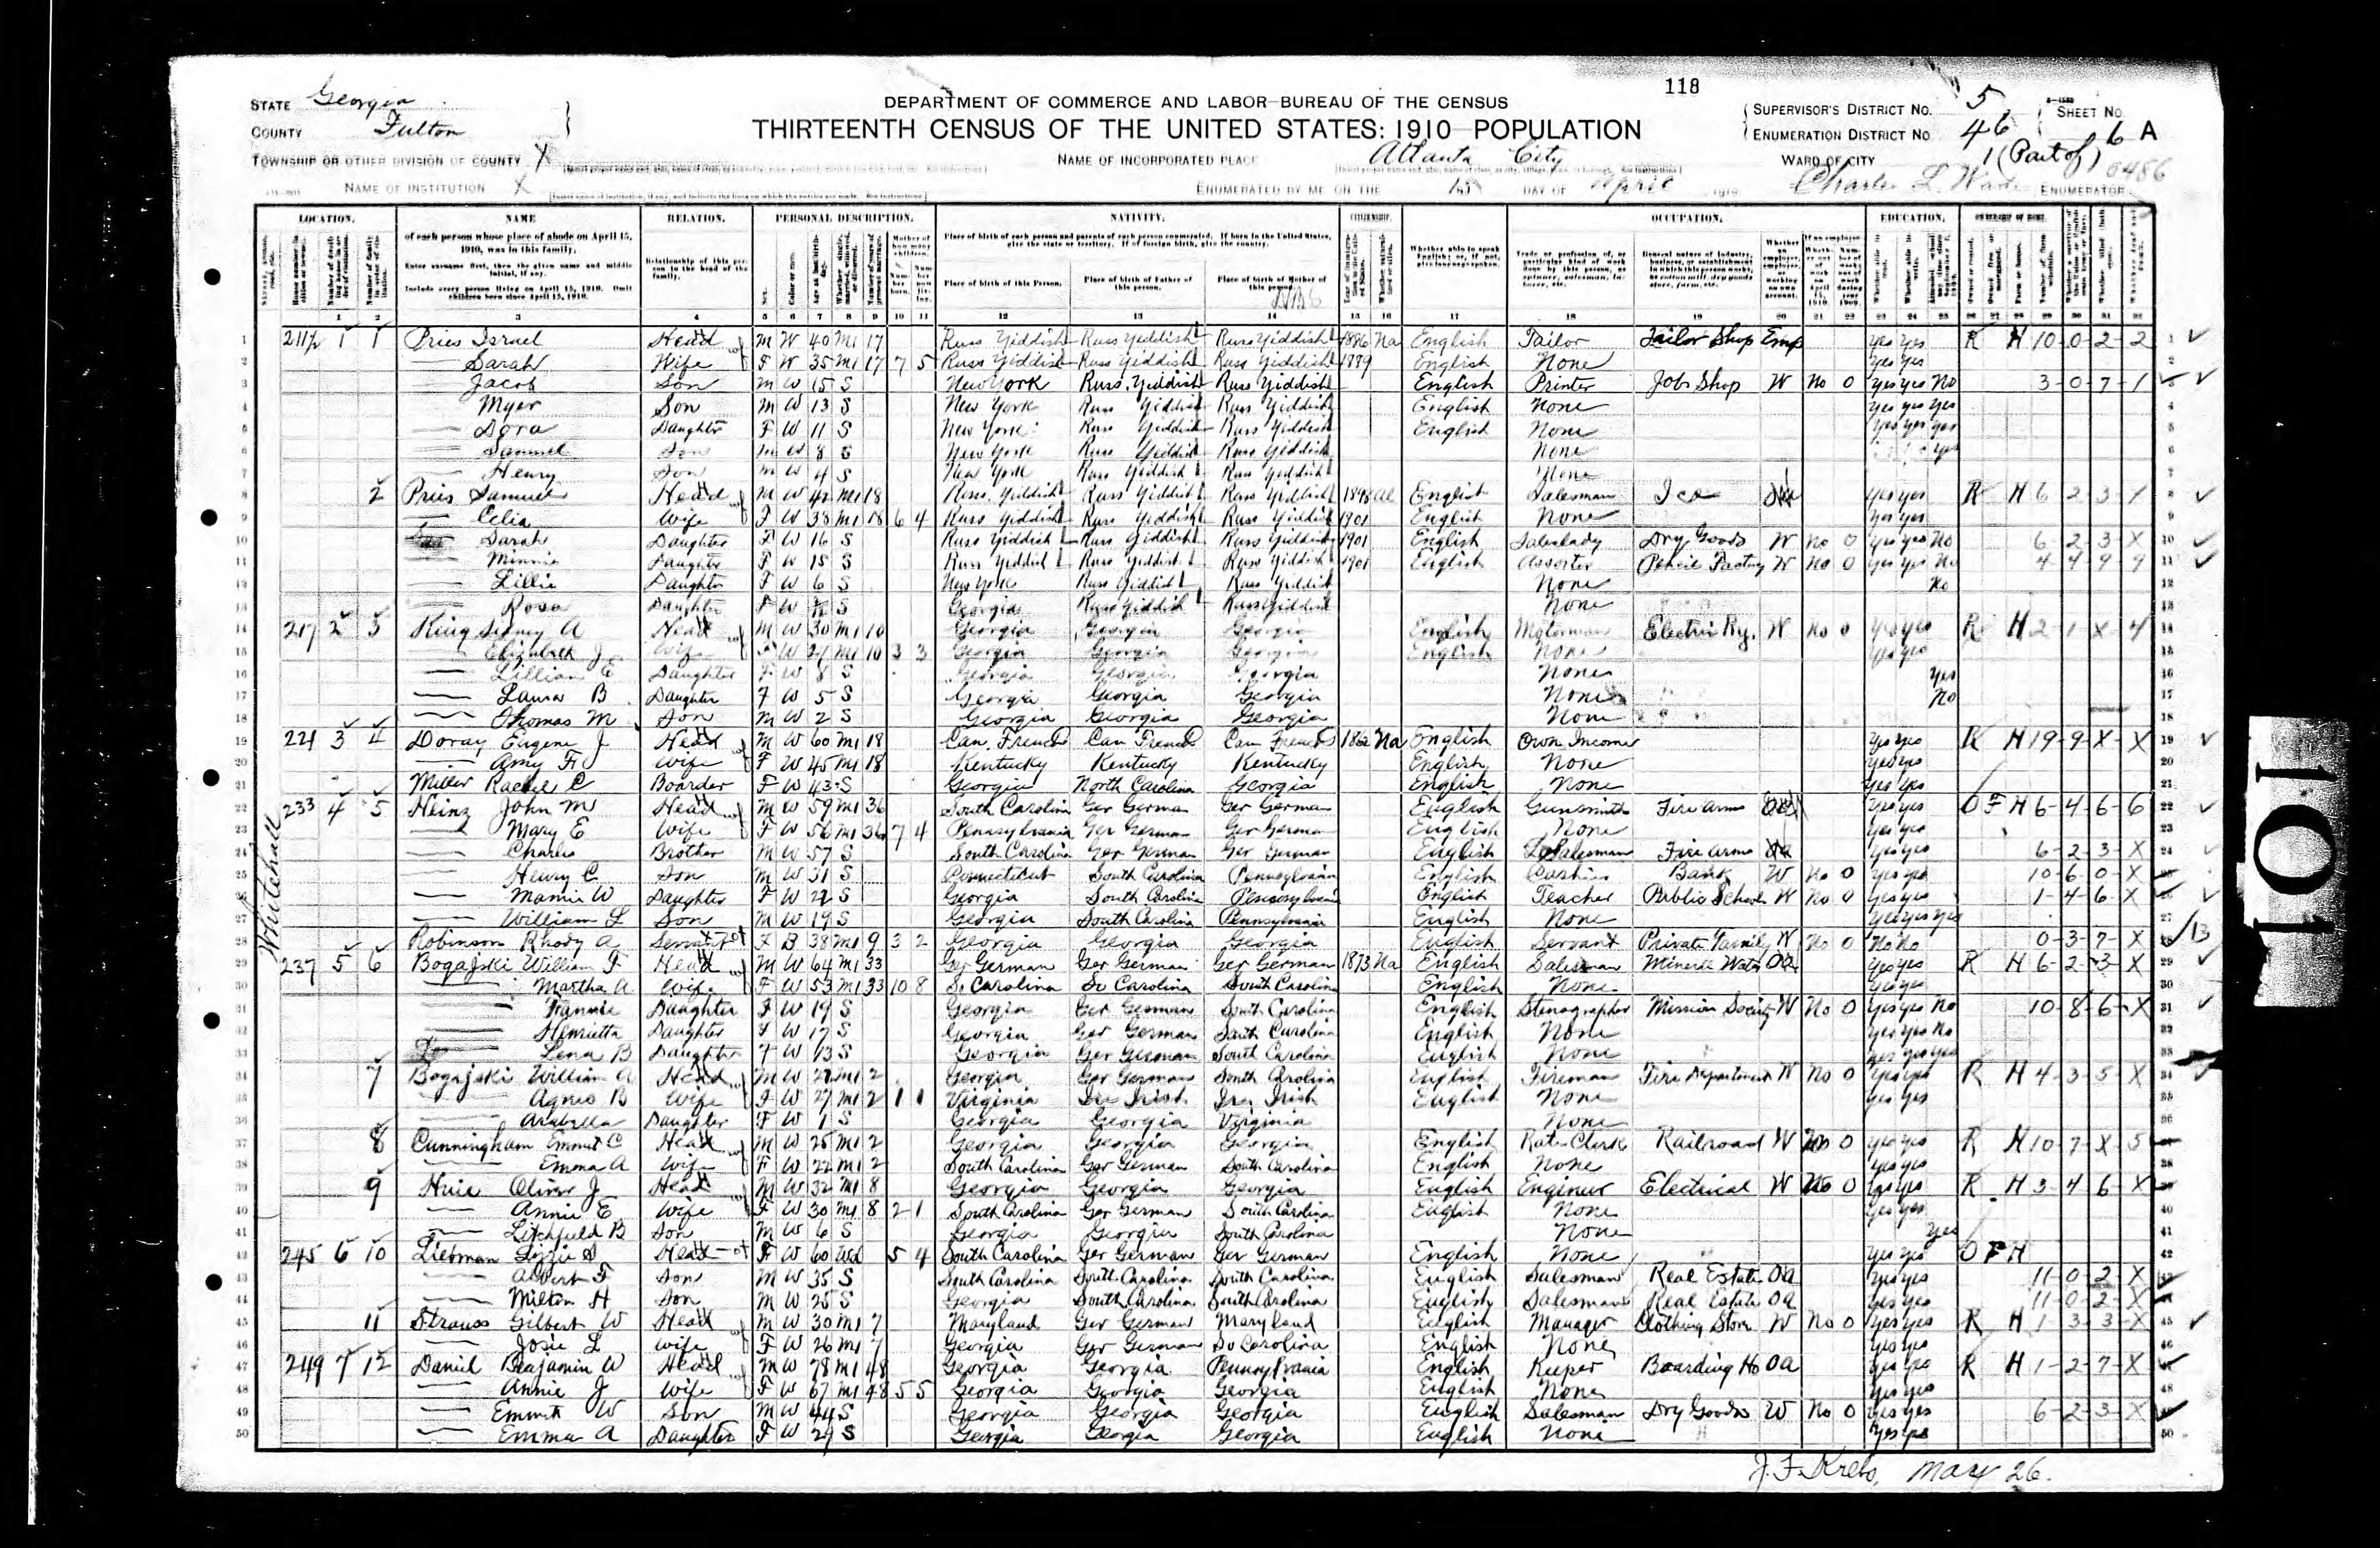 118
STATE Georgia
DEPARTMENT OF COMMERCE AND LABOR-BUREAU OF THE CENSUS
SUPERVISOR'S DISTRICT NO. 5 SHEET NO.
COUNTY Fulton
THIRTEENTH CENSUS OF THE UNITED STATES: 1910-POPULATION
ENUMERATION DISTRICT NO. 46 6 A
TOWNSHIP OR OTHER DIVISION OF COUNTY X
NAME OF INCORPORATED PLACE Atlanta City
WARD OF CITY 1 (Part of) 0486
NAME OF INSTITUTION X
ENUMERATED BY ME ON THE 15 DAY OF April 1910 Charles L. Wade ENUMERATOR
LOCATION. NAME RELATION. PERSONAL DESCRIPTION. NATIVITY. CITIZENSHIP. OCCUPATION. EDUCATION. OWNERSHIP OF HOME.
of each person whose place of abode on April 15, 1910, was in this family.
Enter surname first, then the given name and middle initial, if any.
Include every person living on April 15, 1910. Omit children born since April 15, 1910.
Relationship of this person to the head of the family.
Place of birth of each person and parents of each person enumerated. If born in the United States, give the state or territory. If of foreign birth, give the country.
Place of birth of this Person. Place of birth of Father of this person. Place of birth of Mother of this person.
Whether able to speak English; or, if not, give language spoken.
1 1 1 Pries Israel Head M W 40 M1 17 Russ Yiddish Russ Yiddish Russ Yiddish 1886 Na English Tailor Tailor Shop Emp yes yes R H 10-0-2-2
2 Sarah Wife F W 35 M1 17 7 5 Russ Yiddish Russ Yiddish Russ Yiddish 1889 English None yes yes
3 Jacob Son M W 15 S New York Russ Yiddish Russ Yiddish English Printer Job Shop W No 0 yes yes No 3-0-7-1
4 Myer Son M W 13 S New York Russ Yiddish Russ Yiddish English None yes yes yes
5 Dora Daughter F W 11 S New York Russ Yiddish Russ Yiddish English None yes yes yes
6 Samuel Son M W 8 S New York Russ Yiddish Russ Yiddish None yes
7 Henry Son M W 4 S New York Russ Yiddish Russ Yiddish None
8 2 Pries Samuel Head M W 42 M1 18 Russ Yiddish Russ Yiddish Russ Yiddish 1898 Al English Salesman Ice yes yes R H 6-2-3-X
9 Celia Wife F W 38 M1 18 6 4 Russ Yiddish Russ Yiddish Russ Yiddish 1901 English None yes yes
10 Sarah Daughter F W 16 S Russ Yiddish Russ Yiddish Russ Yiddish 1901 English Saleslady Dry Goods W No 0 yes yes No 6-2-3-X
11 Minnie Daughter F W 15 S Russ Yiddish Russ Yiddish Russ Yiddish 1901 English Assorter Pencil Factory W No 0 yes yes No 4-4-9-9
12 Lillie Daughter F W 6 S New York Russ Yiddish Russ Yiddish None No
13 Rosa Daughter F W S Georgia Russ Yiddish Russ Yiddish None
14 217 2 3 King Sidney A Head M W 30 M1 10 Georgia Georgia Georgia English Motorman Electric Ry. W No 0 yes yes R H 2-1-X-4
15 Elizabeth J Wife F W 27 M1 10 3 3 Georgia Georgia Georgia English None yes yes
16 Lillian E Daughter F W 8 S Georgia Georgia Georgia None yes
17 Laura B Daughter F W 5 S Georgia Georgia Georgia None No
18 Thomas M Son M W 2 S Georgia Georgia Georgia None
19 221 3 4 Doray Eugene J Head M W 60 M1 18 Can. French Can French Can French 1862 Na English Own Income yes yes R H 19-9-X-X
20 Amy F Wife F W 45 M1 18 Kentucky Kentucky Kentucky English None yes yes
21 Miller Rachel C Boarder F W 43 S Georgia North Carolina Georgia English None yes yes
22 233 4 5 Heinz John M Head M W 59 M1 36 South Carolina Ger German Ger German English Gunsmith Fire Arms yes yes O F H 6-4-6-6
23 Mary E Wife F W 56 M1 36 7 4 Pennsylvania Ger German Ger German English None yes yes
24 Charles Brother M W 57 S South Carolina Ger German Ger German English Salesman Fire Arms yes yes 6-2-3-X
25 Henry C Son M W 31 S Connecticut South Carolina Pennsylvania English Cashier Bank W No 0 yes yes 10-6-0-X
26 Mamie W Daughter F W 22 S Georgia South Carolina Pennsylvania English Teacher Public School W No 0 yes yes 1-4-6-X
27 William L Son M W 19 S Georgia South Carolina Pennsylvania English None yes yes yes
28 Robinson Rhody A Servant F B 38 M1 9 3 2 Georgia Georgia Georgia English Servant Private Family W No 0 No No 0-3-7-X
29 237 5 6 Bogajski William F Head M W 64 M1 33 Ger German Ger German Ger German 1873 Na English Salesman Mineral Water Oa yes yes R H 6-2-3-X
30 Martha A Wife F W 53 M1 33 10 8 So Carolina So Carolina South Carolina English None yes yes
31 Fannie Daughter F W 19 S Georgia Ger German South Carolina English Stenographer Mission Society W No 0 yes yes No 10-8-6-X
32 Henrietta Daughter F W 17 S Georgia Ger German South Carolina English None yes yes No
33 Lena B Daughter F W 13 S Georgia Ger German South Carolina English None yes yes yes
34 7 Bogajski William A Head M W 27 M1 2 Georgia Ger German South Carolina English Fireman Fire Department W No 0 yes yes R H 4-3-5-X
35 Agnes B Wife F W 27 M1 2 1 1 Virginia Ire Irish Ire Irish English None yes yes
36 Arabella Daughter F W 1 S Georgia Georgia Virginia None
37 8 Cunningham Emmet C Head M W 25 M1 2 Georgia Georgia Georgia English Rate Clerk Railroad W No 0 yes yes R H 10-7-X-5
38 Emma A Wife F W 22 M1 2 South Carolina Ger German South Carolina English None yes yes
39 9 Huie Oliver J Head M W 32 M1 8 Georgia Georgia Georgia English Engineer Electrical W No 0 yes yes R H 3-4-6-X
40 Annie E Wife F W 30 M1 8 2 1 South Carolina Ger German South Carolina English None yes yes
41 Litchfield B Son M W 6 S Georgia Georgia South Carolina None yes
42 245 6 10 Liebman Lizzie S Head F W 60 Wd 5 4 South Carolina Ger German Ger German English None yes yes O F H
43 Albert F Son M W 35 S South Carolina South Carolina South Carolina English Salesman Real Estate Oa yes yes 11-0-2-X
44 Milton H Son M W 25 S Georgia South Carolina South Carolina English Salesman Real Estate Oa yes yes 11-0-2-X
45 11 Strauss Gilbert W Head M W 30 M1 7 Maryland Ger German Maryland English Manager Clothing Store W No 0 yes yes R H 1-3-3-X
46 Josie L Wife F W 26 M1 7 Georgia Ger German So Carolina English None yes yes
47 249 7 12 Daniel Benjamin W Head M W 78 M1 48 Georgia Georgia Pennsylvania English Keeper Boarding Ho Oa yes yes R H 1-2-7-X
48 Annie J Wife F W 67 M1 48 5 5 Georgia Georgia Georgia English None yes yes
49 Emmett W Son M W 44 S Georgia Georgia Georgia English Salesman Dry Goods W No 0 yes yes 6-2-3-X
50 Emma A Daughter F W 29 S Georgia Georgia Georgia English None yes yes
Whitehall
J. F. Krebs, May 26.
101